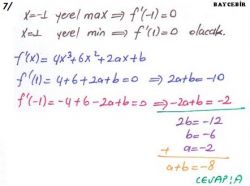 7/
BAYCEBİR
x=-1 yerel max ⇒ f'(-1)=0
x=1 yerel min ⇒ f'(1)=0 olacak.
f'(x) = 4x³+6x²+2ax+b
f'(1) = 4+6+2a+b=0 ⇒ 2a+b=-10
f'(-1) = -4+6-2a+b=0 ⇒ -2a+b=-2
2b=-12
b=-6
+ a=-2
a+b=-8
CEVAP:A